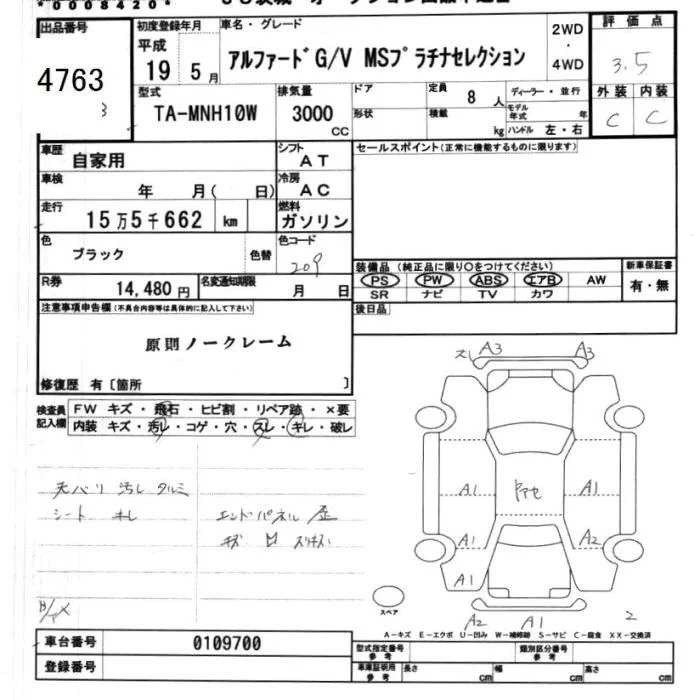 *0008420*
出品番号
4763
3
初度登録年月
平成
19 5月
車名・グレード
アルファードG/V MSプラチナセレクション
2WD
・
4WD
評価点
3.5
外装 内装
C C
型式
TA-MNH10W
排気量
3000
CC
ドア
形状
定員
8人
積載
kg
ディーラー・並行
モデル年式 年
ハンドル 左・右
車歴
自家用
シフト
AT
車検
年 月( 日)
冷房
AC
走行
15万5千662 km
燃料
ガソリン
色
ブラック
色替
色コード
209
R券
14,480円
名変通知期限
月 日
セールスポイント(正常に機能するものに限ります)
装備品(純正品に限り○をつけてください)
PS PW ABS エアB AW
SR ナビ TV カワ
新車保証書
有・無
後日品
注意事項申告欄(不具合内容等は具体的に記入して下さい)
原則ノークレーム
修復歴 有〔箇所 〕
検査員
記入欄
FW キズ・飛石・ヒビ割・リペア跡・×要
内装 キズ・汚レ・コゲ・穴・スレ・キレ・破レ
天バリ 汚レ タルミ
シート キレ
エンドパネル 歪
キズ
A3 A3
A1 A1
A1 A2
A1
A2 A1
2
スペア
A-キズ E-エクボ U-凹み W-補修跡 S-サビ C-腐食 XX-交換済
車台番号
0109700
登録番号
型式指定番号
参考
類別区分番号
参考
車庫証明用
参考
長さ cm
幅 cm
高さ cm